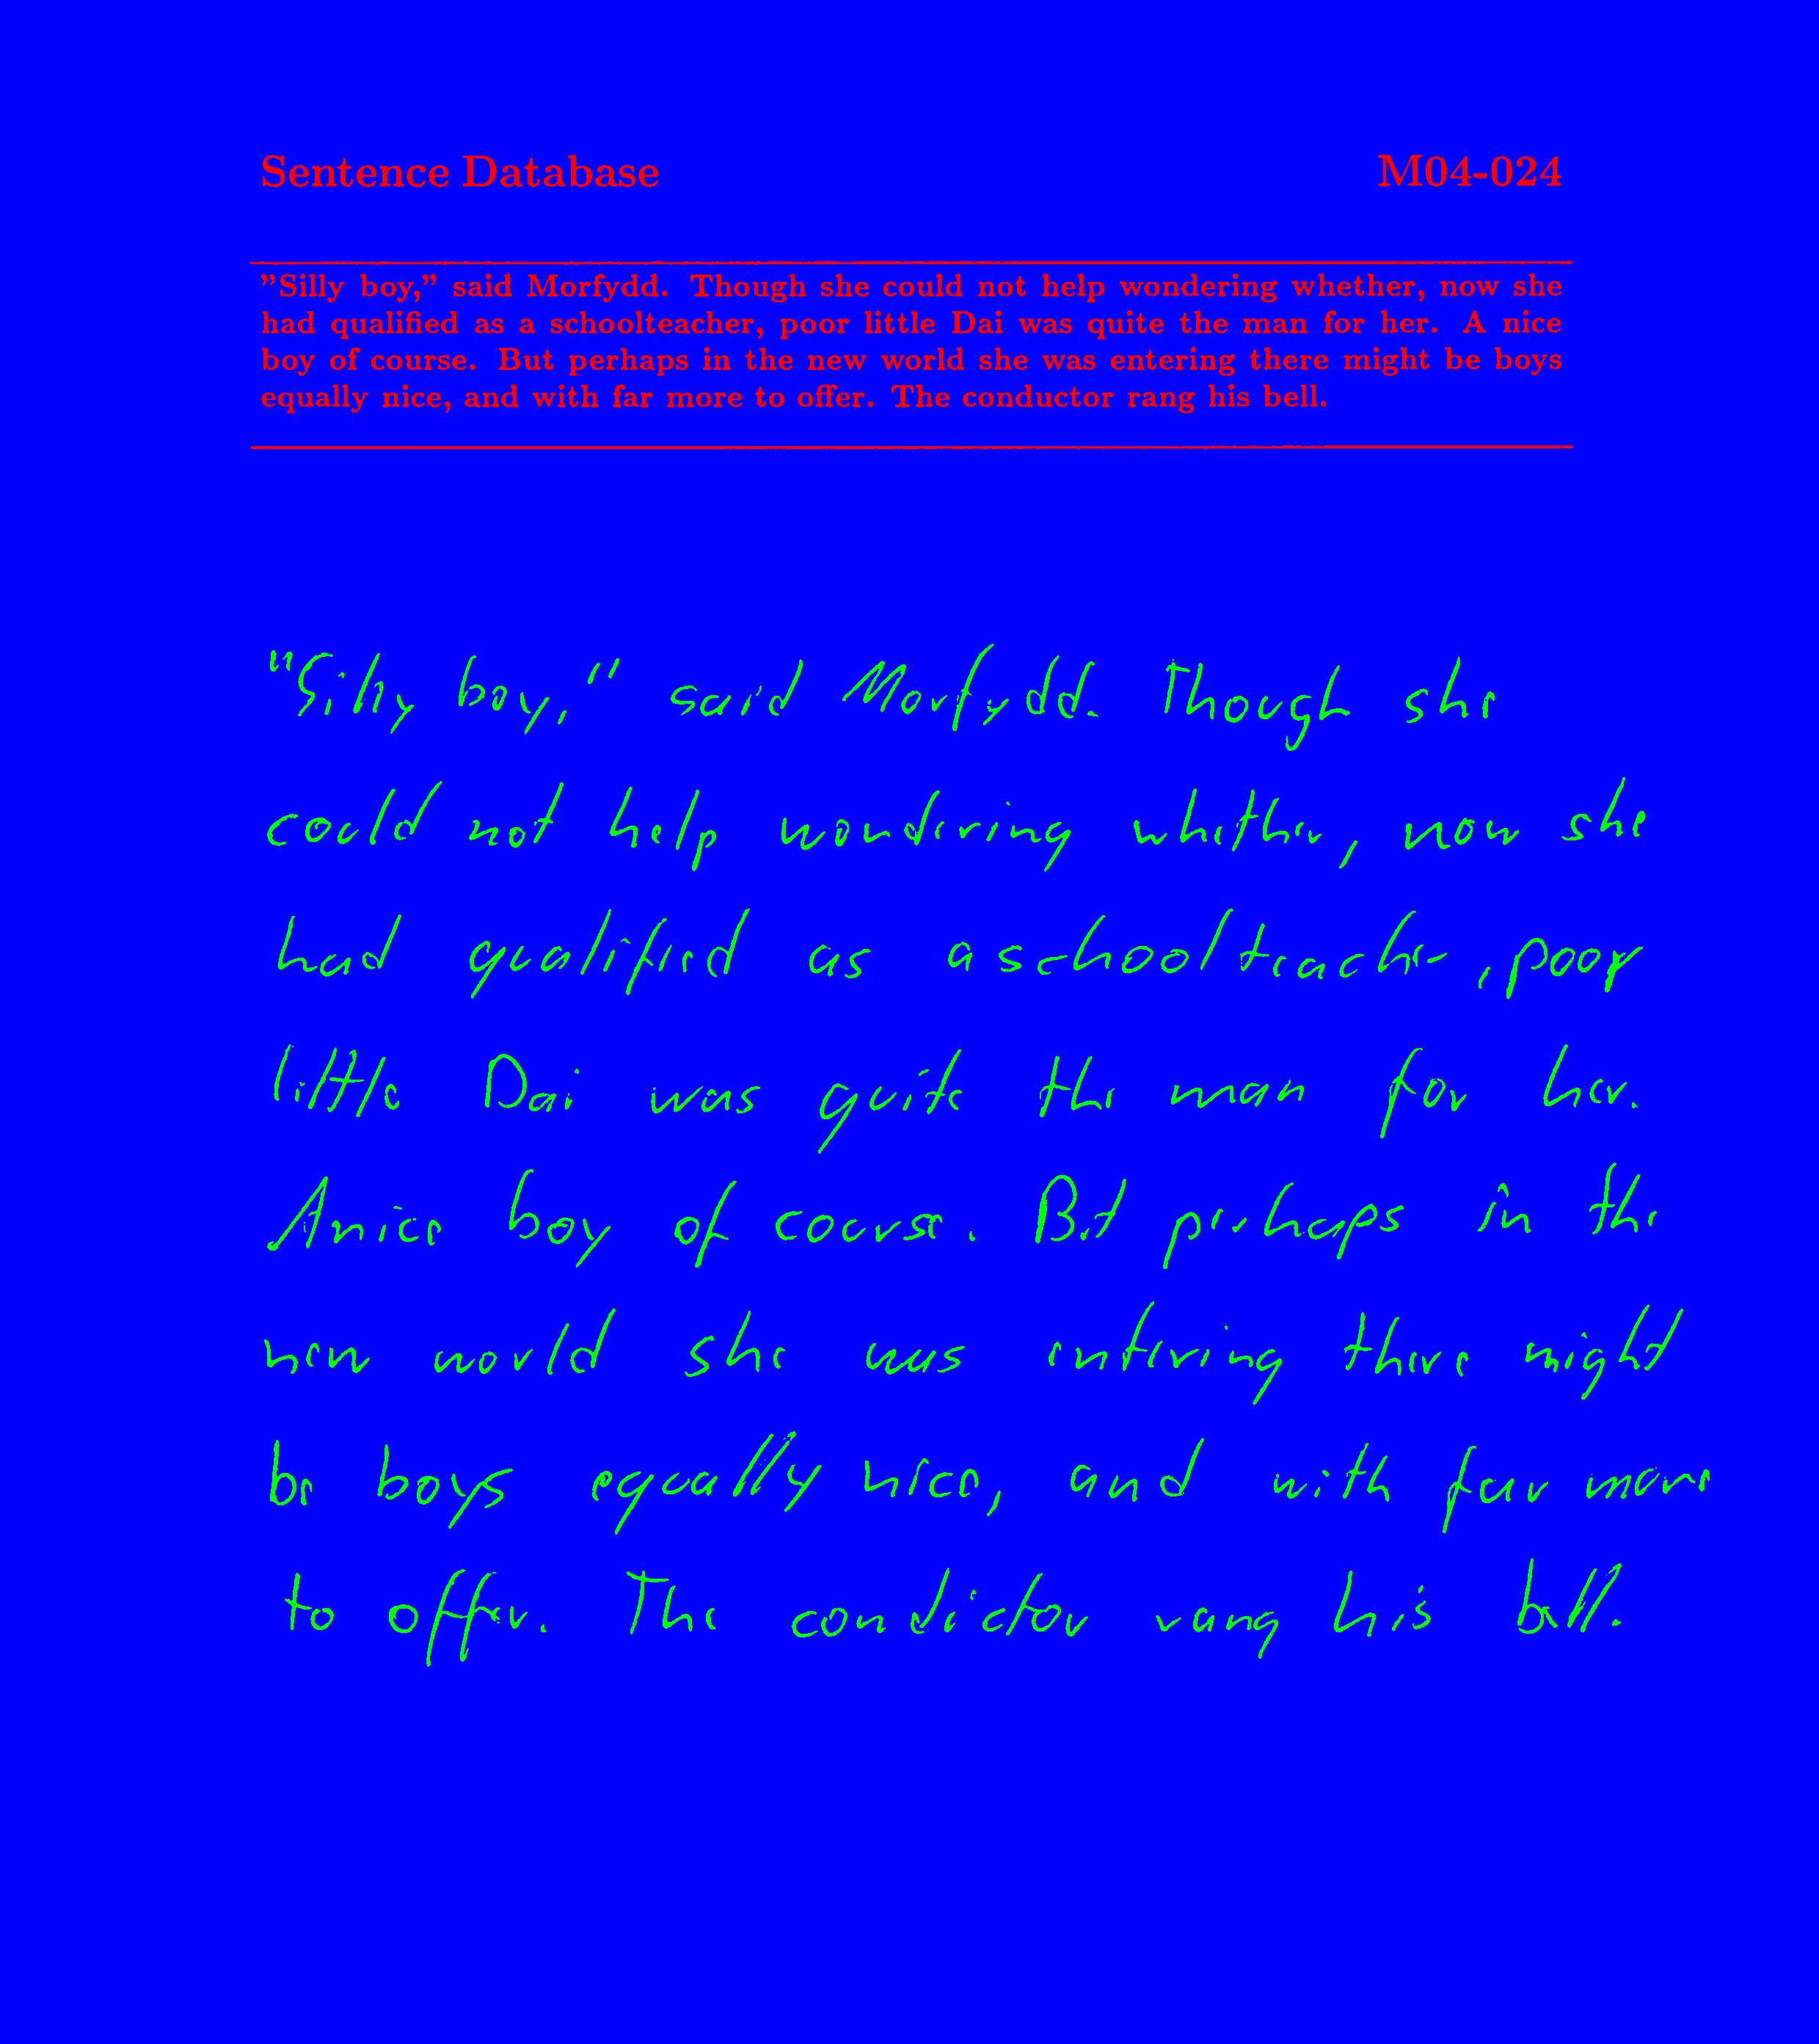 Sentence Database M04-024
"Silly boy," said Morfydd. Though she could not help wondering whether, now she
had qualified as a schoolteacher, poor little Dai was quite the man for her. A nice
boy of course. But perhaps in the new world she was entering there might be boys
equally nice, and with far more to offer. The conductor rang his bell.
"Silly boy," said Morfydd. Though she
could not help wondering whether, now she
had qualified as a schoolteacher, poor
little Dai was quite the man for her.
A nice boy of course. But perhaps in the
new world she was entering there might
be boys equally nice, and with far more
to offer. The condictor rang his bell.